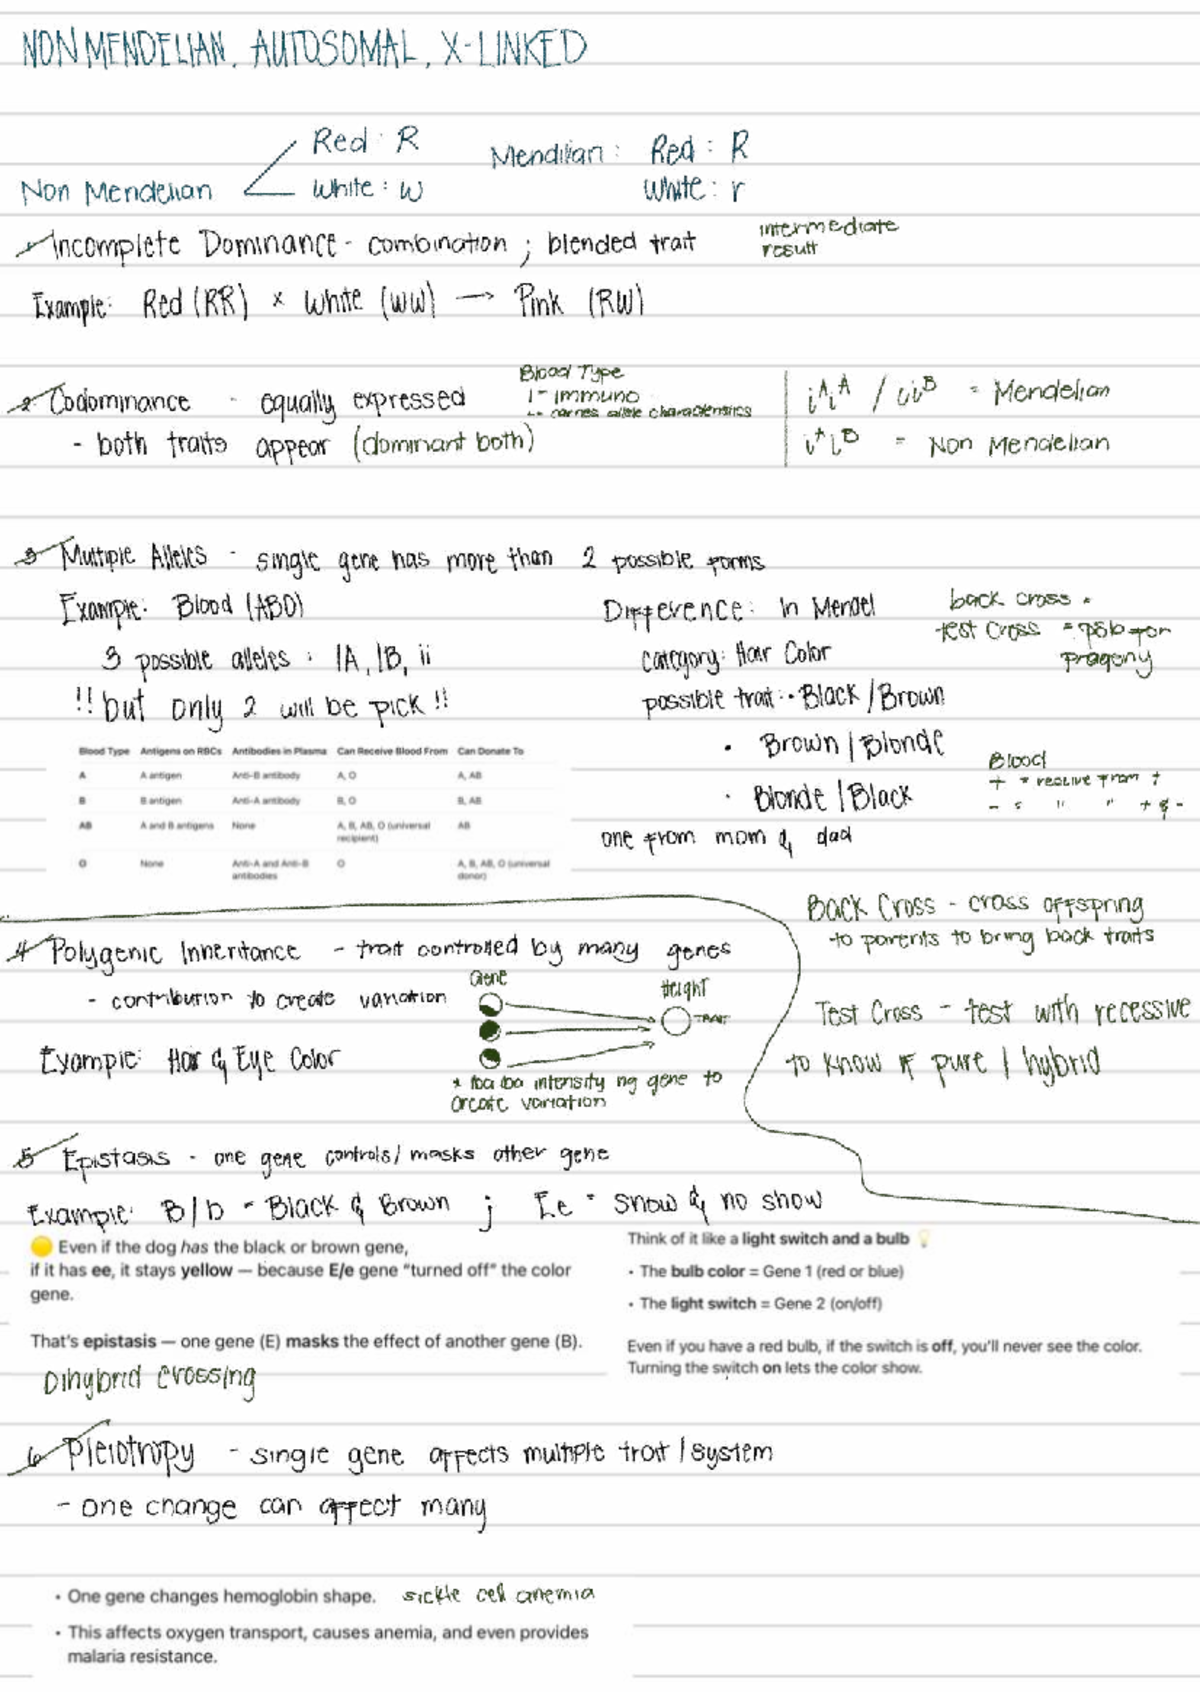 NON MENDELIAN, AUTOSOMAL, X-LINKED
Non Mendelian
Red : R
White : W
Mendilian : Red : R
White : r
1 Incomplete Dominance - combination ; blended trait
intermediate
result
Example: Red (RR) x White (WW) → Pink (RW)
2 Codominance - equally expressed
- both traits appear (dominant both)
Blood Type
I - immuno
↳ carries allele characteristics
iᴬiᴬ / iiᴮ = Mendelian
iᴬiᴮ = Non Mendelian
3 Multiple Alleles - single gene has more than 2 possible forms
Example: Blood (ABO)
3 possible alleles : IA, IB, ii
!! but only 2 will be pick !!
Blood Type Antigens on RBCs Antibodies in Plasma Can Receive Blood From Can Donate To
A A antigen Anti-B antibody A, O A, AB
B B antigen Anti-A antibody B, O B, AB
AB A and B antigens None A, B, AB, O (universal recipient) AB
O None Anti-A and Anti-B antibodies O A, B, AB, O (universal donor)
Difference: in Mendel
category: Hair Color
possible trait: • Black / Brown
• Brown / Blonde
• Blonde / Black
one from mom & dad
back cross
test cross
progeny
Blood
+ = receive from +
- = " " + & -
Back Cross - cross offspring
to parents to bring back traits
Test Cross - test with recessive
to know if pure / hybrid
4 Polygenic Inheritance - trait controlled by many genes
- contribution to create variation
Example: Hair & Eye Color
Gene
Height
TRAIT
* iba iba intensity ng gene to
create variation
5 Epistasis - one gene controls/ masks other gene
Example: B/b - Black & Brown ; E.e = show & no show
🟡 Even if the dog has the black or brown gene,
if it has ee, it stays yellow — because E/e gene "turned off" the color
gene.
That's epistasis — one gene (E) masks the effect of another gene (B).
Think of it like a light switch and a bulb 💡
• The bulb color = Gene 1 (red or blue)
• The light switch = Gene 2 (on/off)
Even if you have a red bulb, if the switch is off, you'll never see the color.
Turning the switch on lets the color show.
Dihybrid crossing
6 Pleiotropy - single gene affects multiple trait / system
- one change can affect many
• One gene changes hemoglobin shape. sickle cell anemia
• This affects oxygen transport, causes anemia, and even provides
malaria resistance.